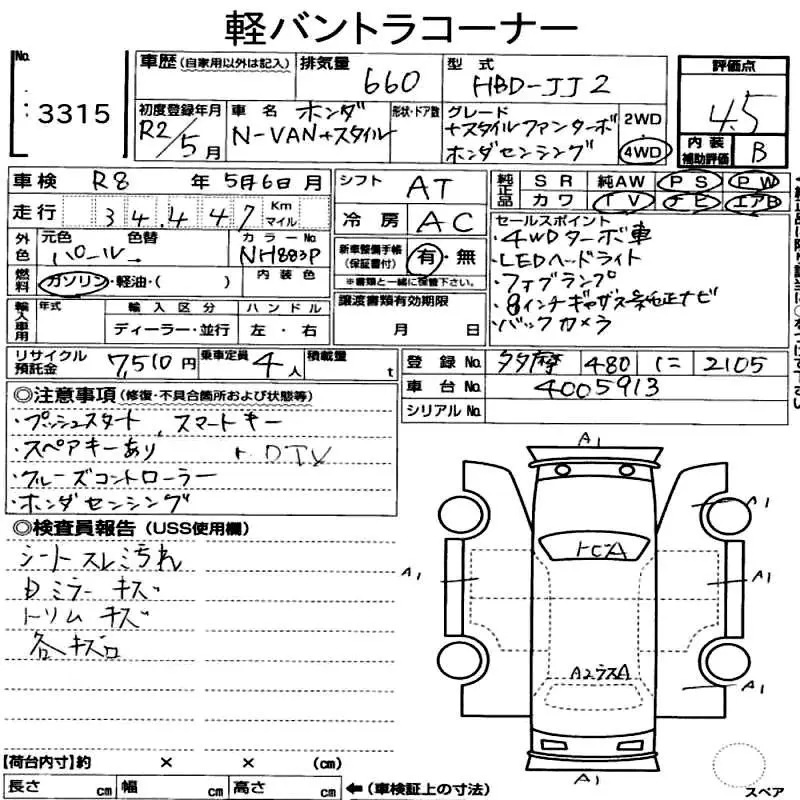 軽バントラコーナー
No.
3315
車歴(自家用以外は記入)
排気量
660
型式
HBD-JJ2
評価点
4.5
内装
補助評価
B
初度登録年月
R2/5月
車名
ホンダ
N-VAN+スタイル
形状・ドア数
グレード
+スタイルファンターボ
ホンダセンシング
2WD
4WD
車検
R8年5月6日月
シフト
AT
純正品
SR
純AW
PS
PW
カワ
TV
ナビ
エアB
走行
34,447
Km
マイル
冷房
AC
セールスポイント
・4WDターボ車
・LEDヘッドライト
・フォグランプ
・8インチギャザズ純正ナビ
・バックカメラ
外色
元色
色替
パール
カラーNo.
NH883P
新車整備手帳
(保証書付)
有・無
※書類と一緒に保管下さい。
燃料
ガソリン・軽油・( )
内装色
譲渡書類有効期限
月 日
輸入車用
年式
輸入区分
ディーラー・並行
ハンドル
左・右
リサイクル
預託金
7,510円
乗車定員
4人
積載量
t
登録No.
多摩 480 に 2105
車台No.
4005913
シリアルNo.
◎注意事項(修復・不具合箇所および状態等)
・プッシュスタート、スマートキー
・スペアキーあり
・DTV
・クルーズコントローラー
・ホンダセンシング
◎検査員報告(USS使用欄)
シートスレミ汚れ
Dミラーキズ
トリムキズ
各キズロ
A1
A1
A1
A1
A1
A1
【荷台内寸】約 × × (cm)
長さ cm 幅 cm 高さ cm
←(車検証上の寸法)
スペア